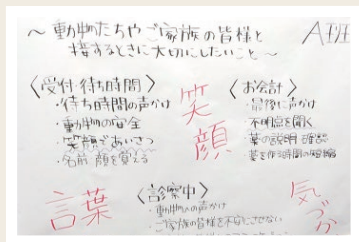 ～動物たちやご家族の皆様と
接するときに大切にしたいこと～
A班
〈受付・待ち時間〉
・待ち時間の声かけ
・動物の安全
・笑顔であいさつ
・名前 顔を覚える
笑顔
〈お会計〉
・最後に声かけ
・不明点を聞く
・薬の説明 確認
・薬を作る時間の短縮
言葉
〈診察中〉
・動物への声かけ
・ご家族の皆様を不安にさせない
気づか